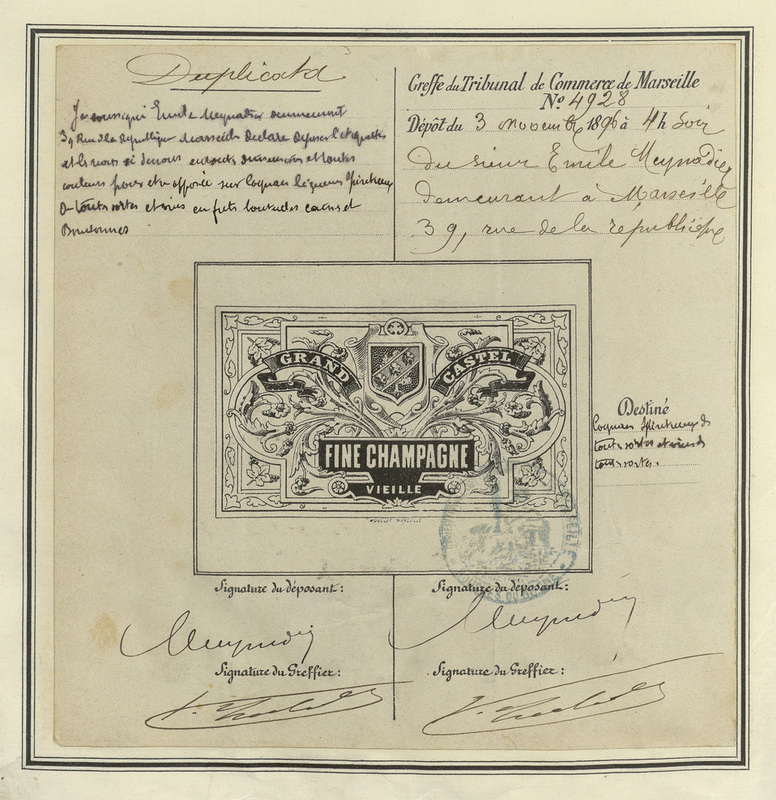 Duplicata
Je soussigné Emile Meynadier demeurant
39 Rue de la République Marseille Declare Déposer l'etiquette
et toutes
couleurs pour etre apposée sur Cognac liqueurs Spiritueux
toutes sortes et vins en futs bouteilles caisses et
Bonbonnes
Greffe du Tribunal de Commerce de Marseille
No 4928
Dépôt du 3 novembre 1896 à 4h Soir
du sieur Emile Meynadier
demeurant à Marseille
39, rue de la république
GRAND CASTEL
FINE CHAMPAGNE
VIEILLE
Destiné
Cognac Spiritueux de
toutes sortes et vins de
toutes sortes.
Signature du déposant:
Signature du déposant:
Meynadier
Meynadier
Signature du Greffier:
Signature du Greffier: